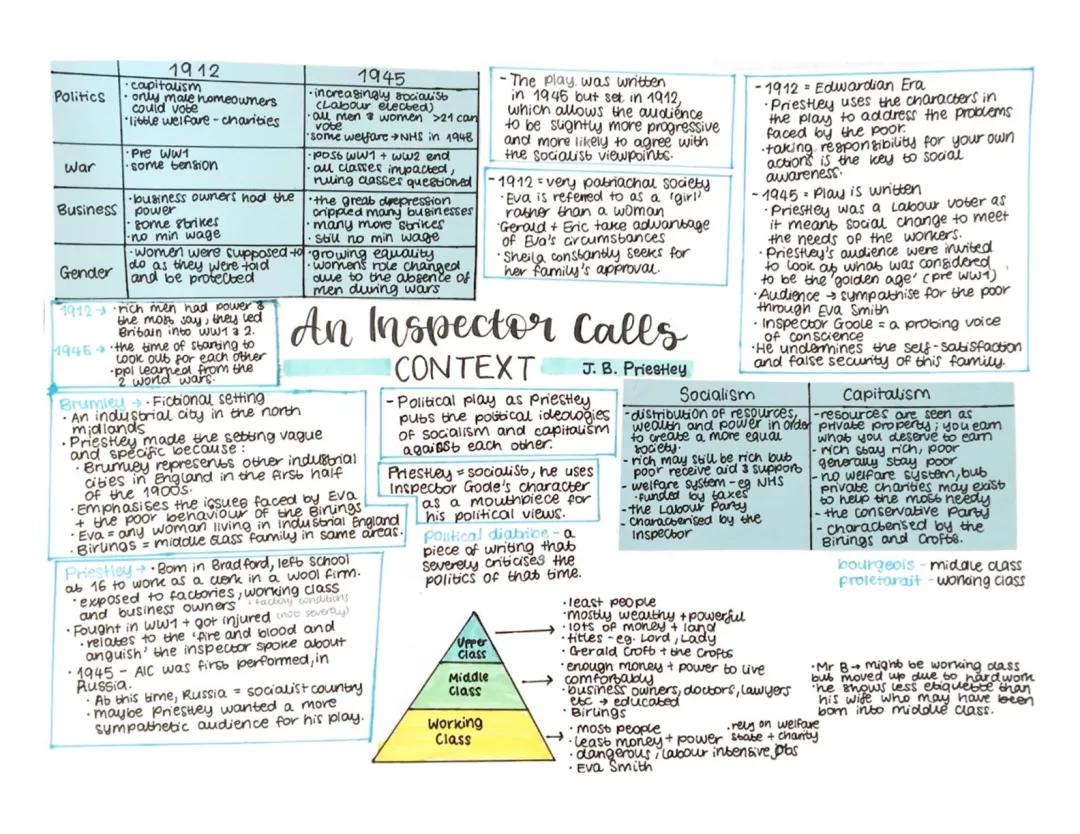 1912
1945
Politics
· capitalism
· only male homeowners
could vote
· little welfare - charities
· increasingly socialist
(Labour elected)
· all men & women >21 can
vote
· some welfare → NHS in 1948
War
· Pre WW1
· some tension
· post WW1 + WW2 end
· all classes impacted,
ruling classes questioned
Business
· business owners had the
power
· some strikes
· no min wage
· the great depression
crippled many businesses
· many more strikes
· still no min wage
Gender
· women were supposed to
do as they were told
and be protected
· growing equality
· women's role changed
due to the absence of
men during wars
- The play was written
in 1945 but set in 1912,
which allows the audience
to be slightly more progressive
and more likely to agree with
the socialist viewpoints.
- 1912 = very patriachal society
· Eva is referred to as a 'girl'
rather than a woman
· Gerald + Eric take advantage
of Eva's circumstances
· Sheila constantly seeks for
her family's approval.
- 1912 = Edwardian Era
· Priestley uses the characters in
the play to address the problems
faced by the poor.
· taking responsibility for your own
actions is the key to social
awareness.
- 1945 = Play is written
· Priestley was a Labour voter as
it meant social change to meet
the needs of the workers.
· Priestley's audience were invited
to look at what was considered
to be the 'golden age' (pre WW1)
· Audience → sympathise for the poor
through Eva Smith
· Inspector Goole = a probing voice
of conscience
· He undermines the self-satisfaction
and false security of this family.
1912 → · rich men had power &
the most say, they led
Britain into WW1 & 2.
1945 → · the time of starting to
look out for each other
· ppl learned from the
2 world wars.
An Inspector Calls
CONTEXT
J. B. Priestley
Brumley → · Fictional setting
· An industrial city in the north
midlands
· Priestley made the setting vague
and specific because:
· Brumley represents other industrial
cities in England in the first half
of the 1900s.
· Emphasises the issues faced by Eva
+ the poor behaviour of the Birlings
· Eva = any woman living in industrial England
· Birlings = middle class family in same areas.
- Political play as Priestley
puts the political ideologies
of socialism and capitalism
against each other.
Priestley = socialist, he uses
Inspector Goole's character
as a mouthpiece for
his political views.
Political diatribe - a
piece of writing that
severely criticises the
politics of that time.
Socialism
Capitalism
- distribution of resources,
wealth and power in order
to create a more equal
society.
- rich may still be rich but
poor receive aid & support
- welfare system - eg NHS
· funded by taxes
- the Labour Party
- characterised by the
Inspector
- resources are seen as
private property; you earn
what you deserve to earn
- rich stay rich, poor
generally stay poor
- no welfare system, but
private charities may exist
to help the most needy
- the conservative party
- characterised by the
Birlings and Crofts.
bourgeois - middle class
proletarait - working class
Priestley → · Born in Bradford, left school
at 16 to work as a clerk in a wool firm.
· exposed to factories, working class
and business owners
· factory conditions
· Fought in WW1 + got injured (not severely)
· relates to the 'fire and blood and
anguish' the inspector spoke about
· 1945 - AIC was first performed, in
Russia.
· At this time, Russia = socialist country
· maybe Priestley wanted a more
sympathetic audience for his play.
Upper
Class
Middle
Class
Working
Class
· least people
· mostly wealthy + powerful
· lots of money + land
· titles - eg. Lord, Lady
· Gerald Croft + the Crofts
· enough money + power to live
comfortably
· business owners, doctors, lawyers
etc → educated
· Birlings
· most people
· least money + power
· dangerous, labour intensive jobs
· Eva Smith
· rely on welfare
state + charity
· Mr B → might be working class
but moved up due to hardwork
· he shows less etiquette than
his wife who may have been
born into middle class.